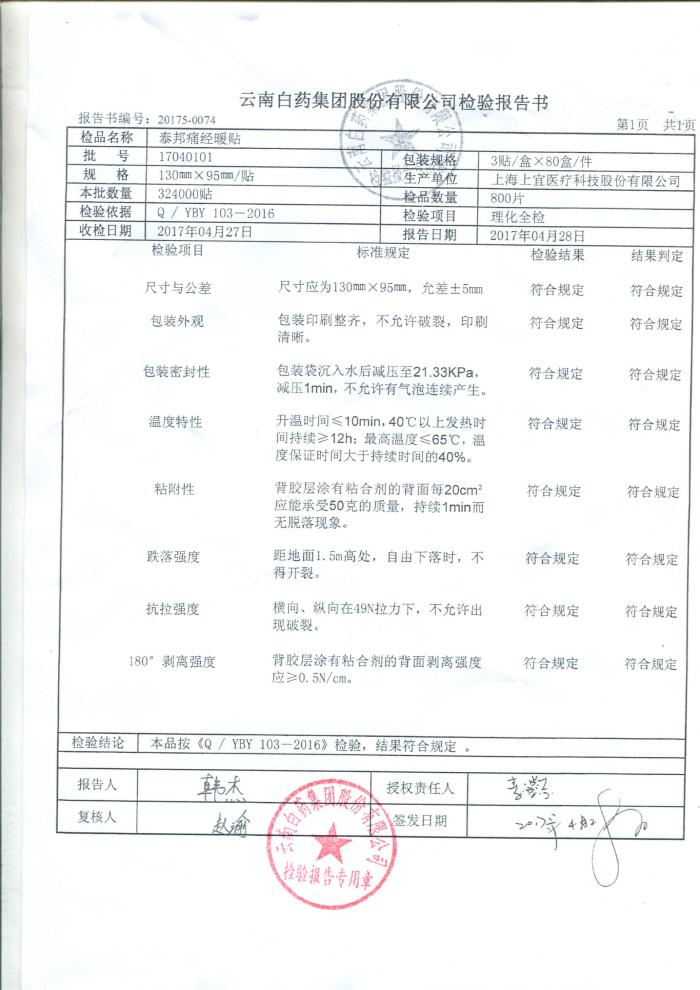 云南白药集团股份有限公司检验报告书
报告书编号：20175-0074 第1页 共1页
检品名称 泰邦痛经暖贴
批 号 17040101 包装规格 3贴/盒×80盒/件
规 格 130mm×95mm/贴 生产单位 上海上宜医疗科技股份有限公司
本批数量 324000贴 检品数量 800片
检验依据 Q / YBY 103-2016 检验项目 理化全检
收检日期 2017年04月27日 报告日期 2017年04月28日
检验项目 标准规定 检验结果 结果判定
尺寸与公差 尺寸应为130mm×95mm，允差±5mm 符合规定 符合规定
包装外观 包装印刷整齐，不允许破裂，印刷 符合规定 符合规定
清晰。
包装密封性 包装袋沉入水后减压至21.33KPa， 符合规定 符合规定
减压1min，不允许有气泡连续产生。
温度特性 升温时间≤10min，40℃以上发热时 符合规定 符合规定
间持续≥12h；最高温度≤65℃，温
度保证时间大于持续时间的40%。
粘附性 背胶层涂有粘合剂的背面每20cm² 符合规定 符合规定
应能承受50克的质量，持续1min而
无脱落现象。
跌落强度 距地面1.5m高处，自由下落时，不 符合规定 符合规定
得开裂。
抗拉强度 横向、纵向在49N拉力下，不允许出 符合规定 符合规定
现破裂。
180°剥离强度 背胶层涂有粘合剂的背面剥离强度 符合规定 符合规定
应≥0.5N/cm。
检验结论 本品按《Q / YBY 103-2016》检验，结果符合规定 。
报告人 韩杰 授权责任人
复核人 赵瑜 签发日期
云南白药集团股份有限公司
检验报告专用章